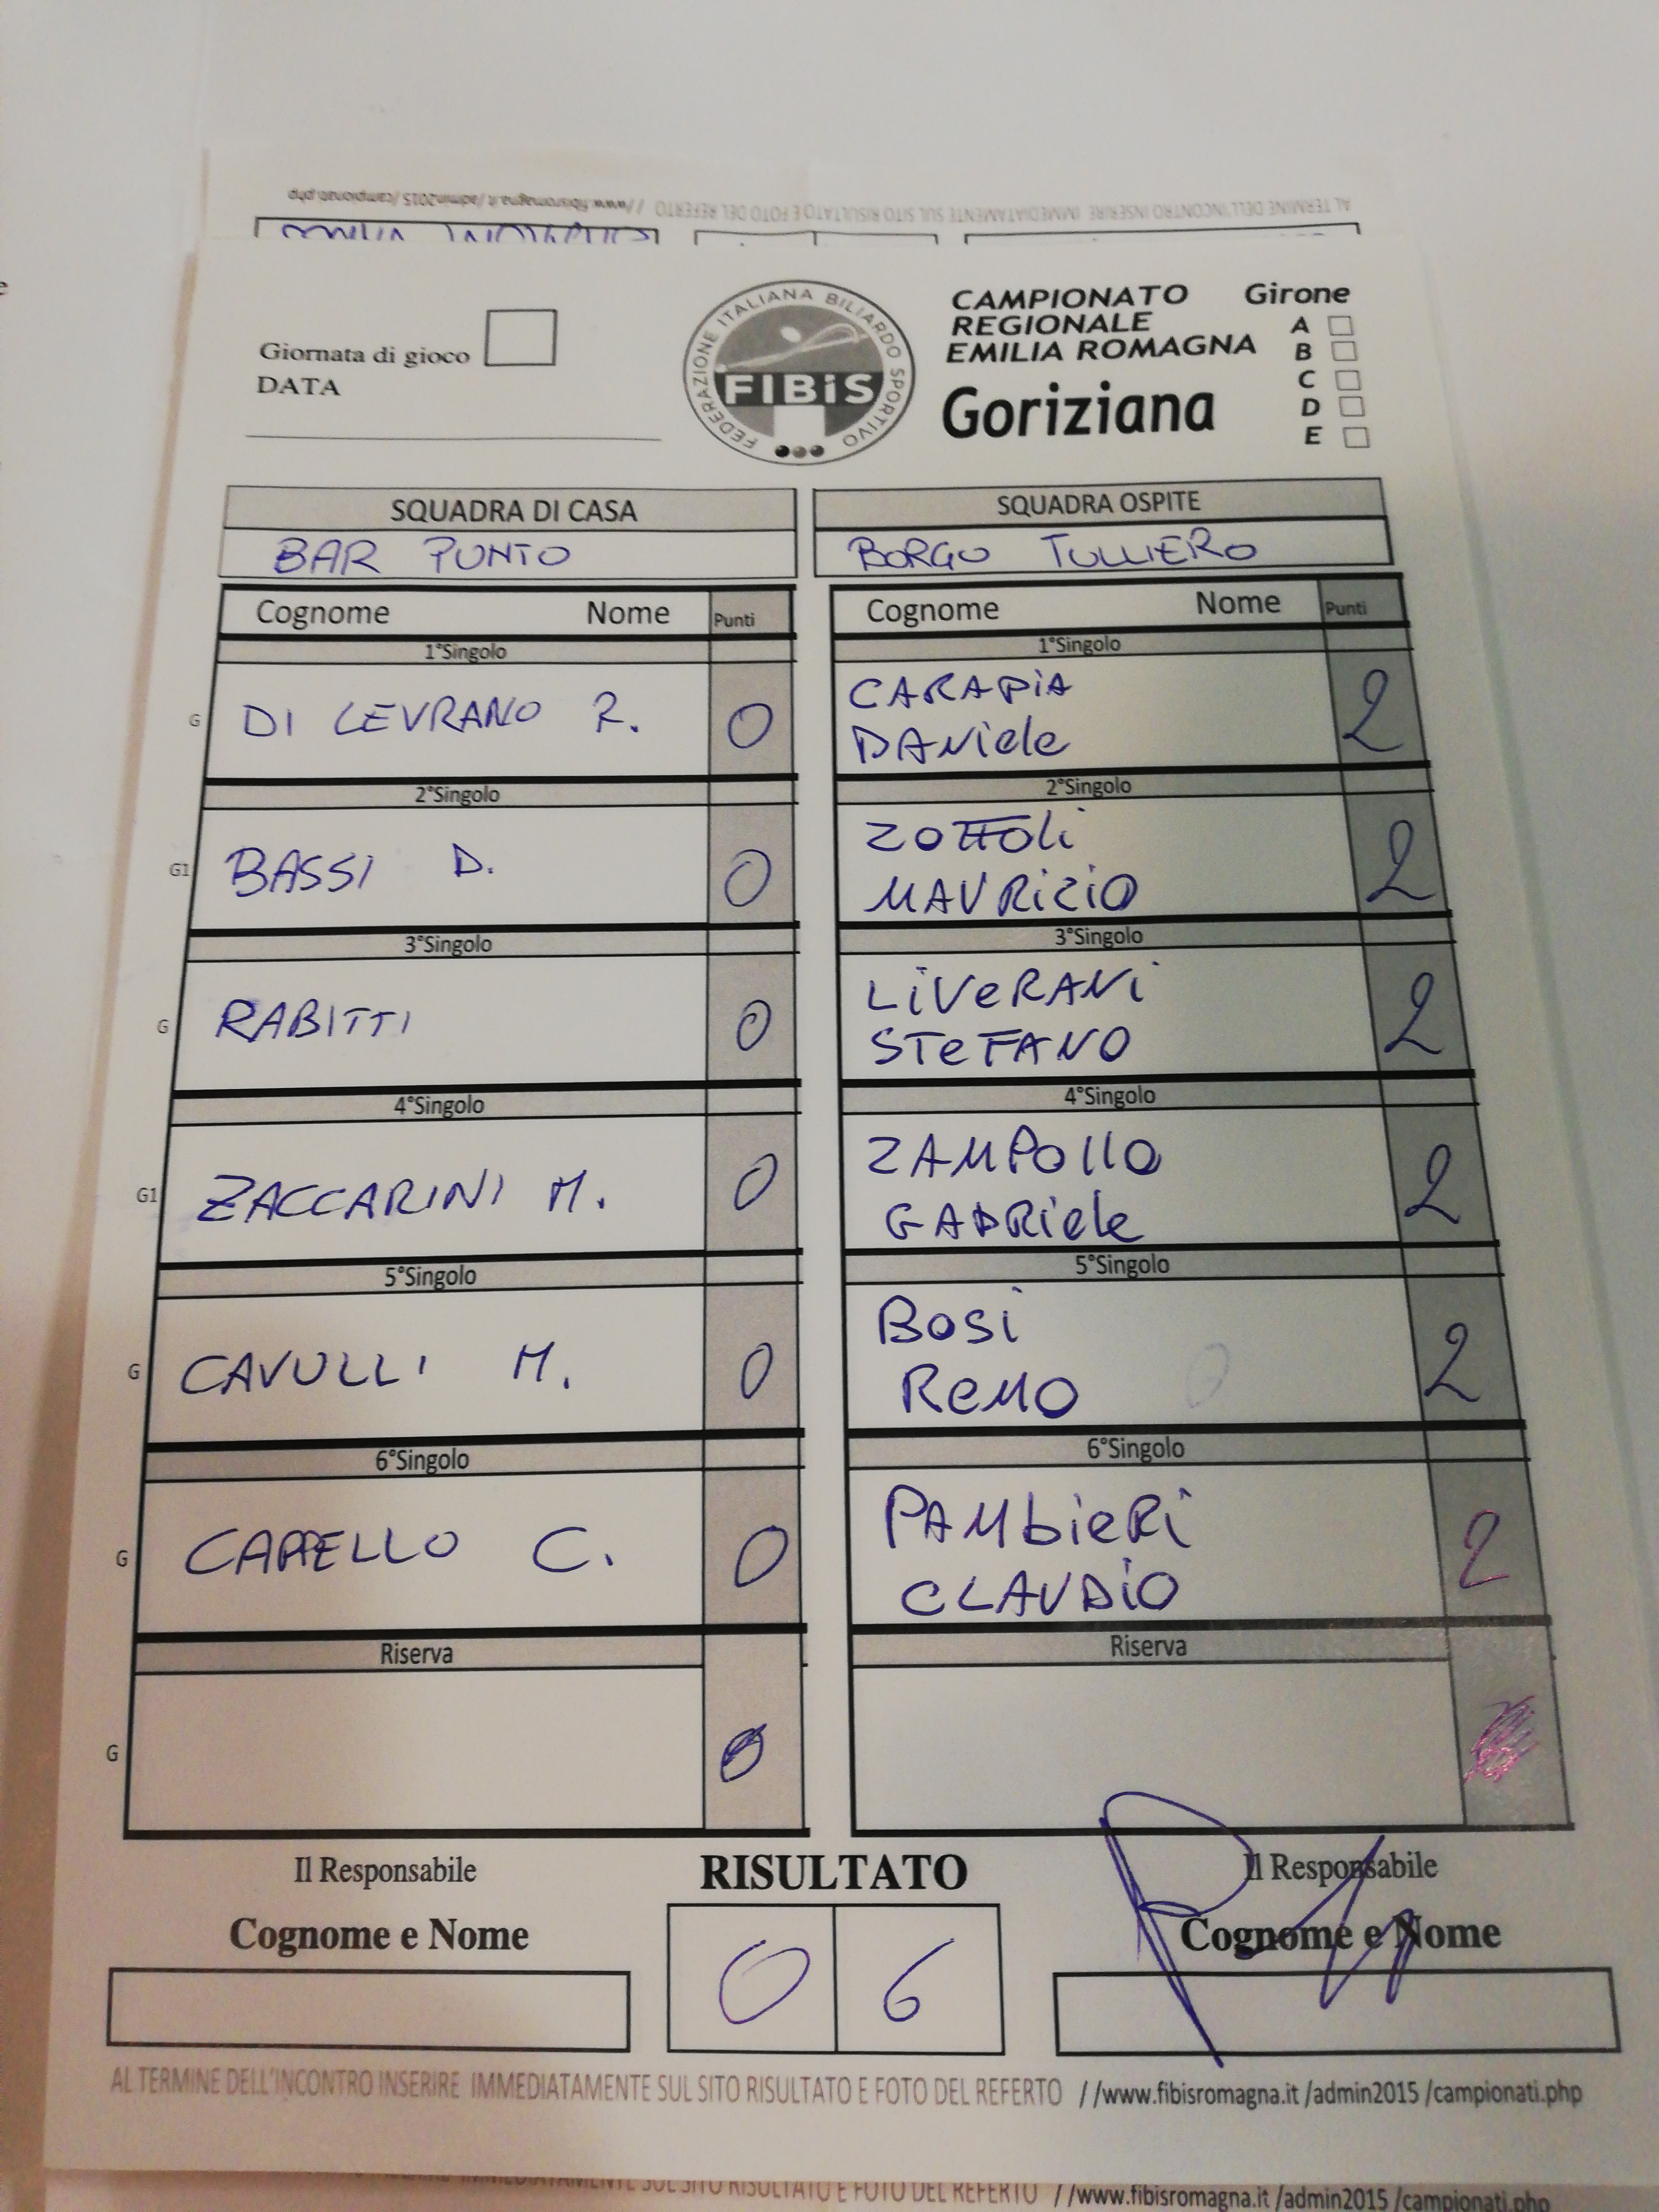 AL TERMINE DELL'INCONTRO INSERIRE IMMEDIATAMENTE SUL SITO RISULTATO E FOTO DEL REFERTO //www.fibisromagna.it /admin2015 /campionati.php
Giornata di gioco
DATA
FEDERAZIONE ITALIANA BILIARDO SPORTIVO
FIBiS
CAMPIONATO
REGIONALE
EMILIA ROMAGNA
Goriziana
Girone
A
B
C
D
E
SQUADRA DI CASA SQUADRA OSPITE
BAR PUNTO BORGO TULLIERO
Cognome Nome Punti Cognome Nome Punti
1°Singolo 1°Singolo
G DI LEVRANO R. 0 CARAPiA DANiele 2
2°Singolo 2°Singolo
G1 BASSI D. 0 ZOTTOli MAURiZiO 2
3°Singolo 3°Singolo
G RABITTI 0 LiVeRANi STeFANO 2
4°Singolo 4°Singolo
G1 ZACCARINI M. 0 ZAMPOllO GABRiele 2
5°Singolo 5°Singolo
G CAVULLI M. 0 BOSi ReMO 0 2
6°Singolo 6°Singolo
G CAPPELLO C. 0 PAMbieRi CLAUDiO 2
Riserva Riserva
G 0
Il Responsabile RISULTATO Il Responsabile
Cognome e Nome 0 6 Cognome e Nome
AL TERMINE DELL'INCONTRO INSERIRE IMMEDIATAMENTE SUL SITO RISULTATO E FOTO DEL REFERTO //www.fibisromagna.it /admin2015 /campionati.php
IMMEDIATAMENTE SUL SITO RISULTATO E FOTO DEL REFERTO //www.fibisromagna.it /admin2015 /campionati.php